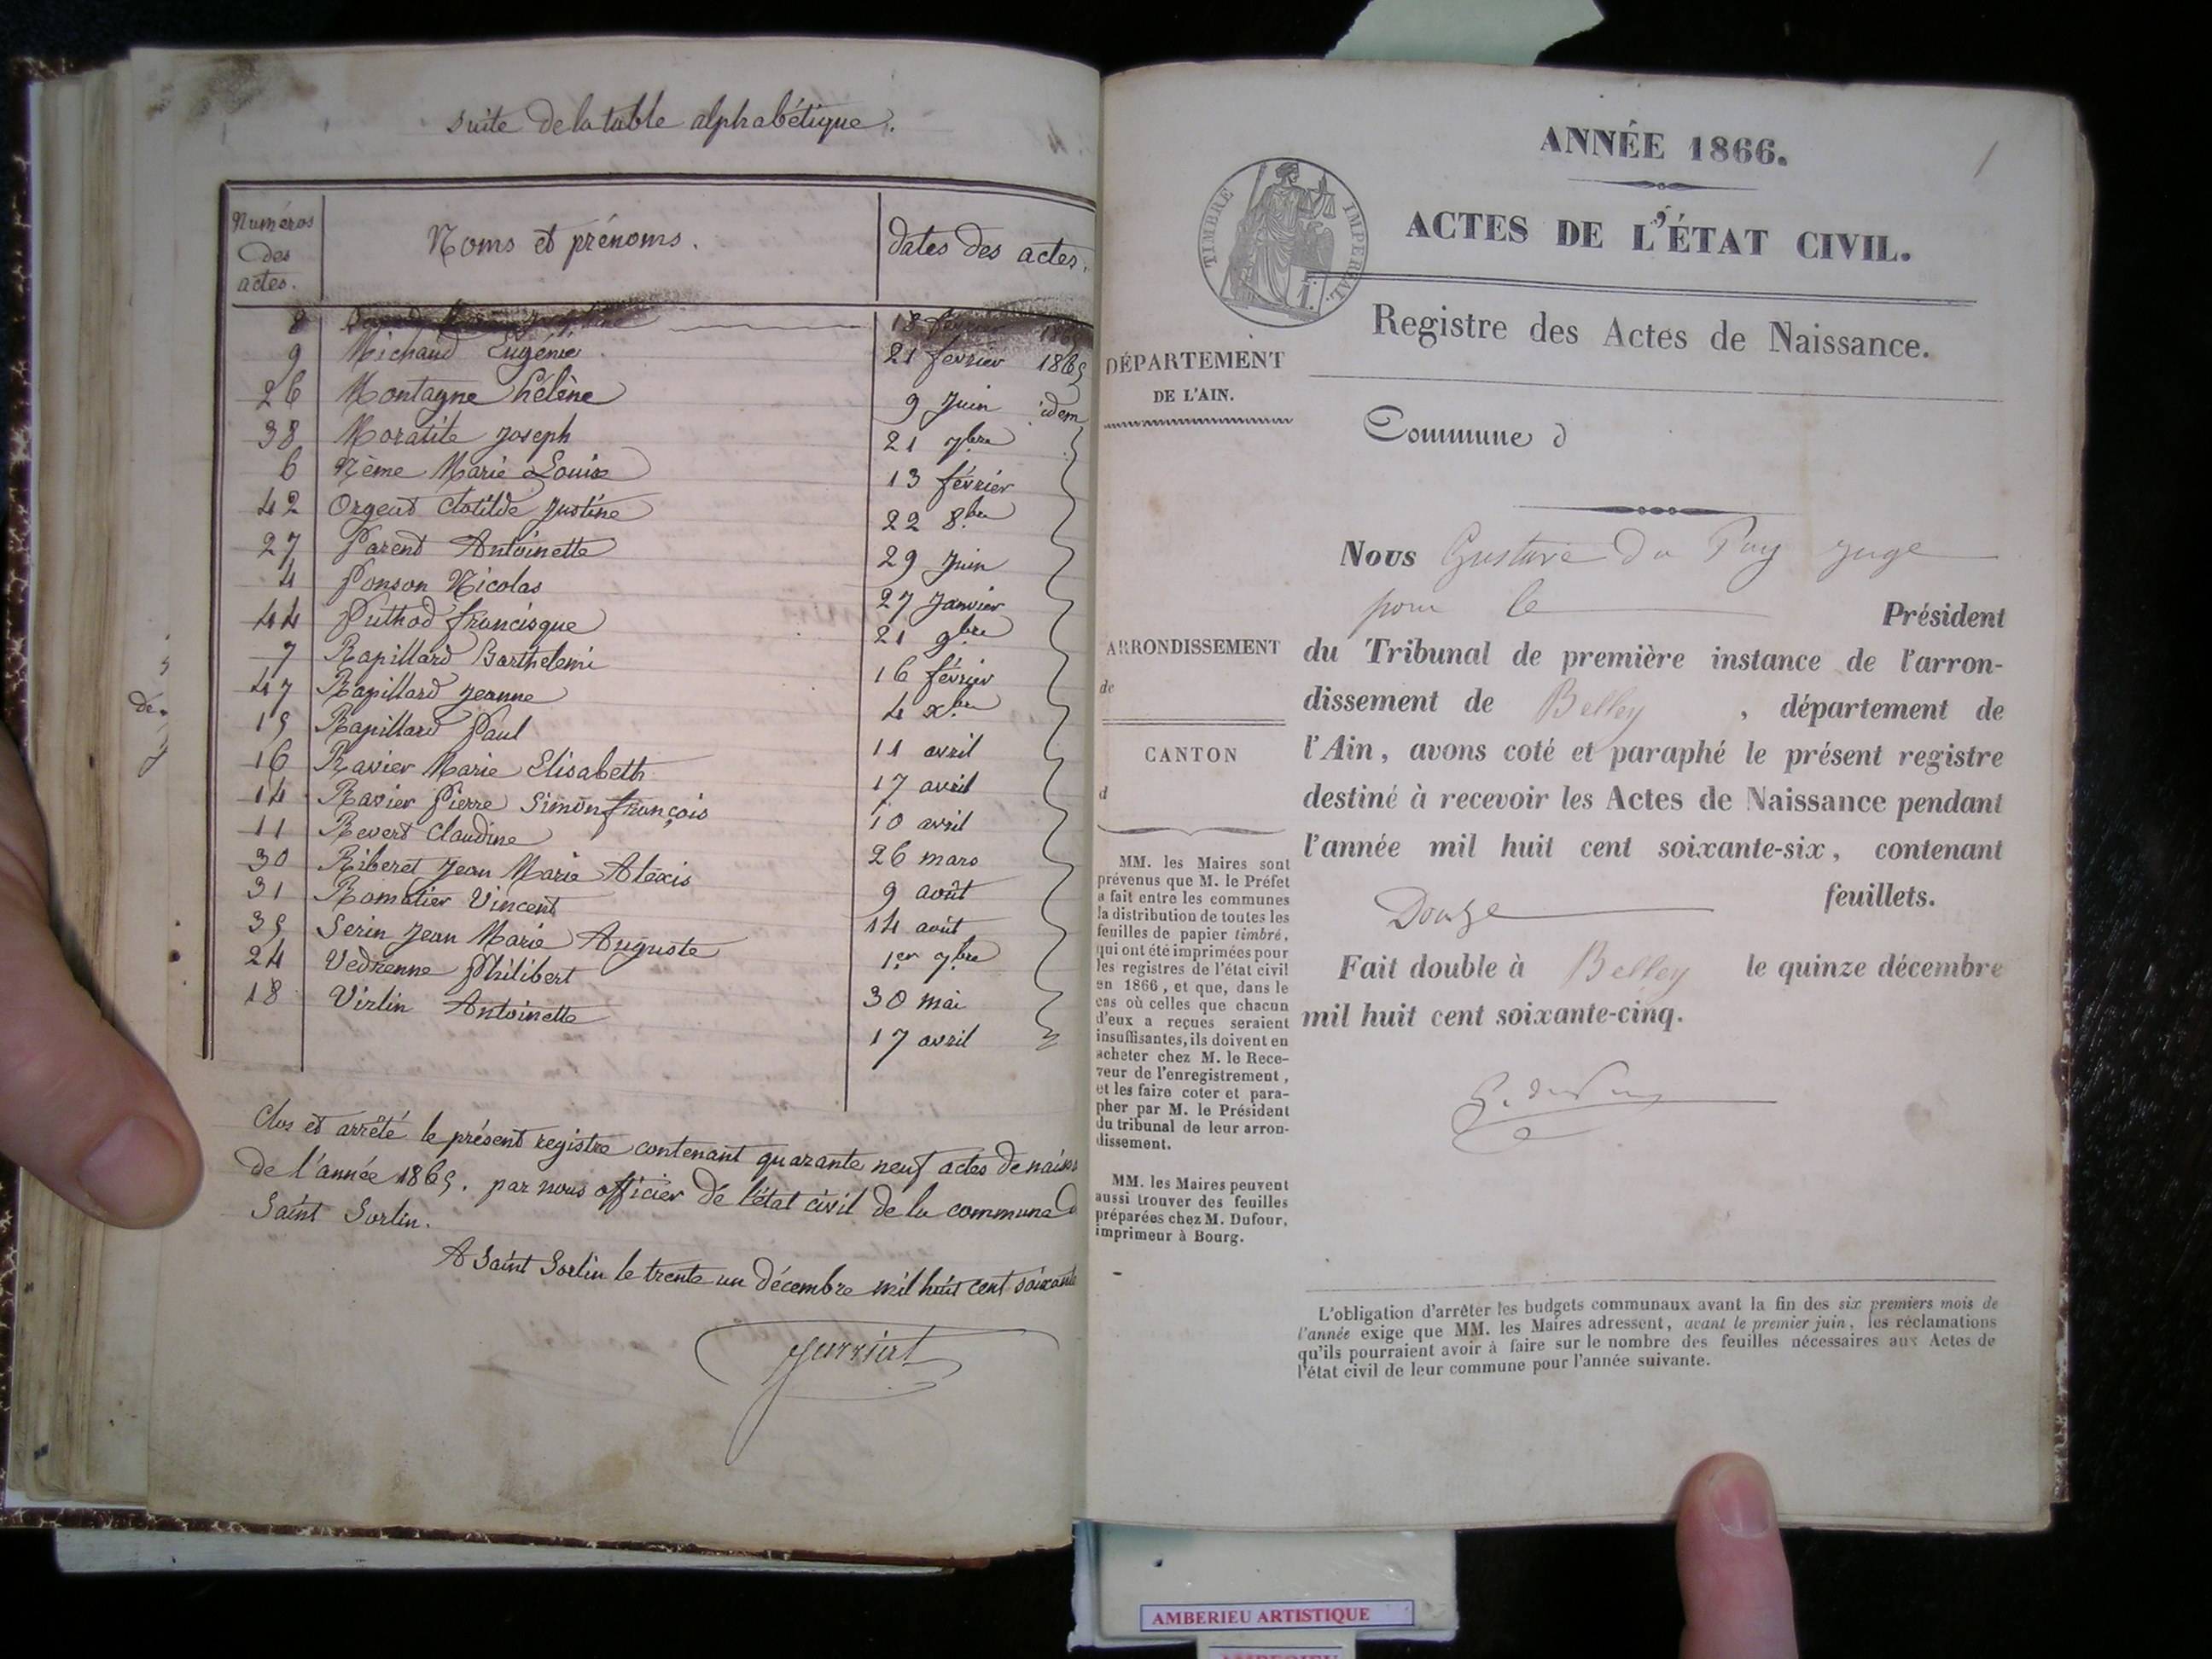 suite de la table alphabétique.
Numéros des actes.
Noms et prénoms.
dates des actes.
8 18 février 1865
9 Michaud Eugénie 21 février 1865
26 Montagne hélène 9 Juin idem
38 Moratite Joseph 21 7bre
6 Nème Marie Louise 13 février
42 Orgeud Clotilde Justine 22 8bre
27 Parend Antoinette 29 Juin
4 Ponson Nicolas 27 Janvier
44 Puthod francisque 21 9bre
7 Rapillard Barthelemi 16 février
47 Rapillard Jeanne 4 xbre
15 Rapillard Paul 11 avril
16 Ravier Marie Elisabeth 17 avril
14 Ravier Pierre Simon françois 10 avril
11 Reverd Claudine 26 mars
30 Riberet Jean Marie Alexis 9 août
31 Romatier Vincent 14 août
35 Serin Jean Marie Auguste 1er 7bre
24 Vedrenne Philibert 30 mai
18 Virlin Antoinette 17 avril
Clos et arrêté le présent registre contenant quarante neuf actes de naiss
de l'année 1865. par nous officier de l'état civil de la commune d
Saint Sorlin.
A Saint Sorlin le trente un décembre mil huit cent soixante
de
1
ANNÉE 1866.
TIMBRE IMPÉRIAL
ACTES DE L'ÉTAT CIVIL.
Registre des Actes de Naissance.
DÉPARTEMENT
DE L'AIN.
Commune d
ARRONDISSEMENT
de
CANTON
d
MM. les Maires sont
prévenus que M. le Préfet
a fait entre les communes
la distribution de toutes les
feuilles de papier timbré,
qui ont été imprimées pour
les registres de l'état civil
en 1866, et que, dans le
cas où celles que chacun
d'eux a reçues seraient
insuffisantes, ils doivent en
acheter chez M. le Rece-
veur de l'enregistrement,
et les faire coter et para-
pher par M. le Président
du tribunal de leur arron-
dissement.
MM. les Maires peuvent
aussi trouver des feuilles
préparées chez M. Dufour,
imprimeur à Bourg.
Nous Gustave Du Puy Juge
pour le Président
du Tribunal de première instance de l'arron-
dissement de Belley, département de
l'Ain, avons coté et paraphé le présent registre
destiné à recevoir les Actes de Naissance pendant
l'année mil huit cent soixante-six, contenant
Douze feuillets.
Fait double à Belley le quinze décembre
mil huit cent soixante-cinq.
L'obligation d'arrêter les budgets communaux avant la fin des six premiers mois de
l'année exige que MM. les Maires adressent, avant le premier juin, les réclamations
qu'ils pourraient avoir à faire sur le nombre des feuilles nécessaires aux Actes de
l'état civil de leur commune pour l'année suivante.
AMBERIEU ARTISTIQUE
AMBERIEU